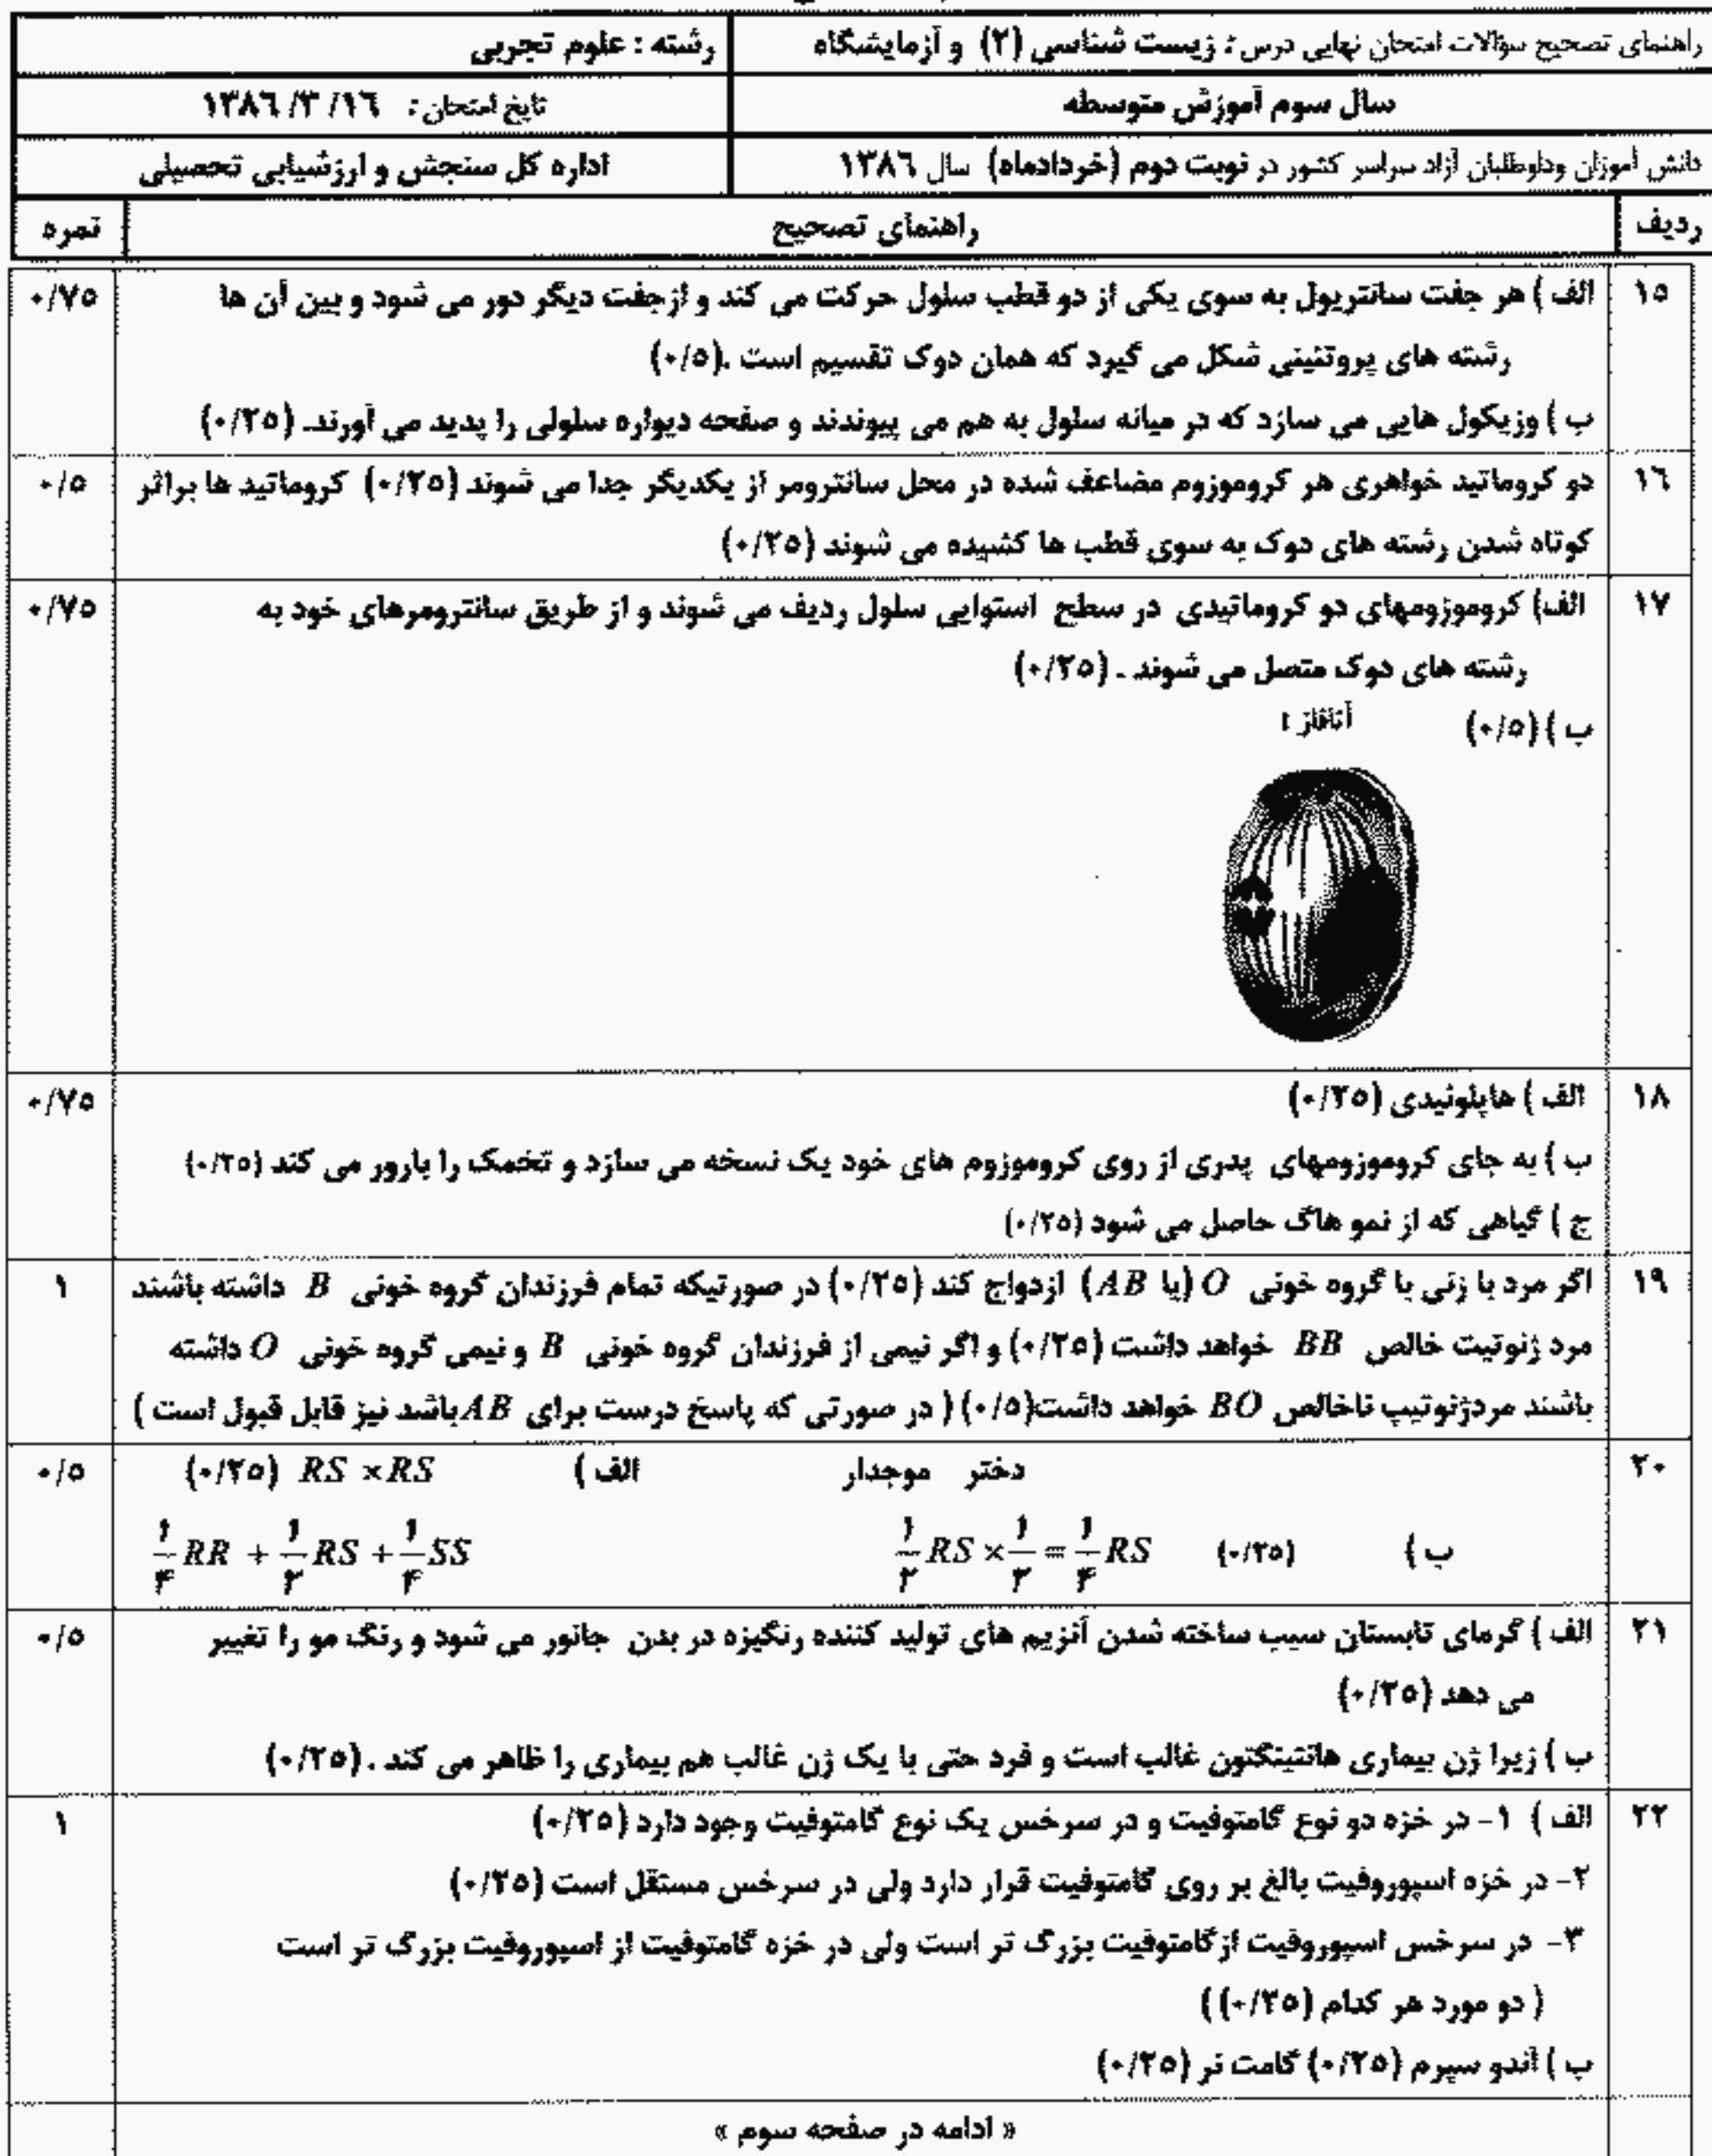 راهنمای تصحیح سؤالات امتحان نهایی درس : زیست شناسی (۲) و آزمایشگاه رشته : علوم تجربی
سال سوم آموزش متوسطه تایخ امتحان : ١٦ /٣ /١٣٨٦
دانش آموزان وداوطلبان آزاد سراسر کشور در نوبت دوم (خردادماه) سال ١٣٨٦ اداره کل سنجش و ارزشیابی تحصیلی
ردیف راهنمای تصحیح نمره
١٥ الف ) هر جفت سانتریول به سوی یکی از دو قطب سلول حرکت می کند و ازجفت دیگر دور می شود و بین آن ها ٠/٧٥
رشته های پروتئینی شکل می گیرد که همان دوک تقسیم است .(٠/٥)
ب ) وزیکول هایی می سازد که در میانه سلول به هم می پیوندند و صفحه دیواره سلولی را پدید می آورند. (٠/٢٥)
١٦ دو کروماتید خواهری هر کروموزوم مضاعف شده در محل سانترومر از یکدیگر جدا می شوند (٠/٢٥) کروماتید ها براثر ٠/٥
کوتاه شدن رشته های دوک به سوی قطب ها کشیده می شوند (٠/٢٥)
١٧ الف) کروموزومهای دو کروماتیدی در سطح استوایی سلول ردیف می شوند و از طریق سانترومرهای خود به ٠/٧٥
رشته های دوک متصل می شوند . (٠/٢٥)
ب ) (٠/٥) آنافاز :
١٨ الف ) هاپلوئیدی (٠/٢٥) ٠/٧٥
ب ) به جای کروموزومهای پدری از روی کروموزوم های خود یک نسخه می سازد و تخمک را بارور می کند (٠/٢٥)
ج ) گیاهی که از نمو هاگ حاصل می شود (٠/٢٥)
١٩ اگر مرد با زنی با گروه خونی O (یا AB) ازدواج کند (٠/٢٥) در صورتیکه تمام فرزندان گروه خونی B داشته باشند ١
مرد ژنوتیت خالص BB خواهد داشت (٠/٢٥) و اگر نیمی از فرزندان گروه خونی B و نیمی گروه خونی O داشته
باشند مردژنوتیپ ناخالص BO خواهد داشت(٠/٥) ( در صورتی که پاسخ درست برای AB باشد نیز قابل قبول است )
٢٠ دختر موجدار الف ) RS × RS (٠/٢٥) ٠/٥
ب ) (٠/٢٥) ۱/۲ RS × ۱/۲ = ۱/۴ RS ۱/۴ RR + ۱/۲ RS + ۱/۴ SS
٢١ الف ) گرمای تابستان سبب ساخته شدن آنزیم های تولید کننده رنگیزه در بدن جانور می شود و رنگ مو را تغییر ٠/٥
می دهد (٠/٢٥)
ب ) زیرا ژن بیماری هانتینگتون غالب است و فرد حتی با یک ژن غالب هم بیماری را ظاهر می کند . (٠/٢٥)
٢٢ الف ) ١- در خزه دو نوع گامتوفیت و در سرخس یک نوع گامتوفیت وجود دارد (٠/٢٥) ١
٢- در خزه اسپوروفیت بالغ بر روی گامتوفیت قرار دارد ولی در سرخس مستقل است (٠/٢٥)
٣- در سرخس اسپوروفیت ازگامتوفیت بزرگ تر است ولی در خزه گامتوفیت از اسپوروفیت بزرگ تر است
( دو مورد هر کدام (٠/٢٥) )
ب ) آندو سپرم (٠/٢٥) گامت نر (٠/٢٥)
« ادامه در صفحه سوم »